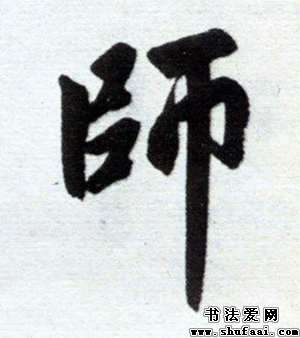 師
书法爱网
www.shufaai.com